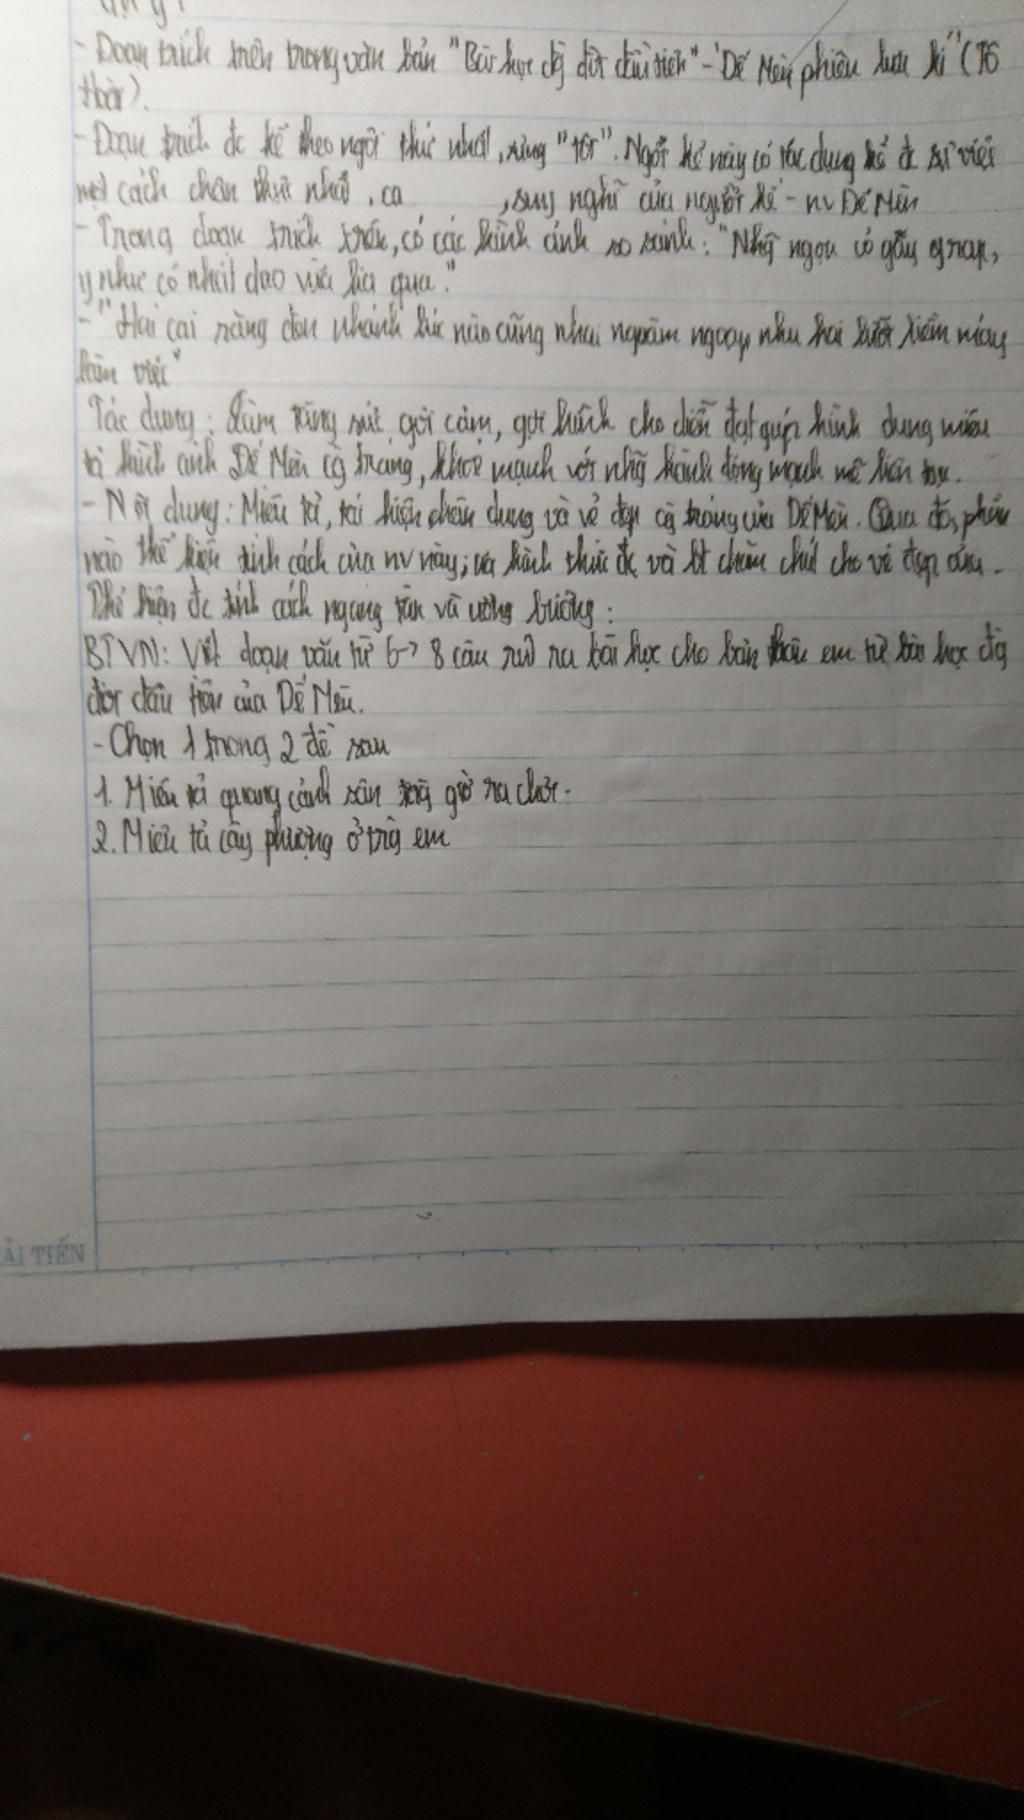 - Đoạn trích trên trong văn bản "Bài học đg đời đầu tiên" - "Dế Mèn phiêu lưu kí" (Tô
Hoài).
- Đoạn trích đc kể theo ngôi thứ nhất, xưng "tôi". Ngôi kể này có tác dụng kể đc sự việc
một cách chân thực nhất, ca , suy nghĩ của người kể - nv Dế Mèn
- Trong đoạn trích trên, có các hình ảnh so sánh: "Nhg ngọn cỏ gãy rạp,
y như có nhát dao vừa lia qua."
- "Hai cái răng đen nhánh lúc nào cũng nhai ngoàm ngoạp như hai lưỡi liềm máy
làm việc"
Tác dụng: Làm tăng sức gợi cảm, gợi hình cho diễn đạt giúp hình dung miêu
tả hình ảnh Dế Mèn cg tráng, khoẻ mạnh với nhg hành động mạnh mẽ liên tục.
- Nội dung: Miêu tả, tái hiện chân dung và vẻ đẹp cg tráng của Dế Mèn. Qua đó, phần
nào thể hiện tính cách của nv này; hình thức đc và bt chăm chút cho vẻ đẹp
Thể hiện đc tính cách ngang tàn và ương bướng.
BTVN: Viết đoạn văn từ 6 -> 8 câu rút ra bài học cho bản thân em từ bài học đg
đời đầu tiên của Dế Mèn.
- Chọn 1 trong 2 đề sau
1. Miêu tả quang cảnh sân trg giờ ra chơi.
2. Miêu tả cây phượng ở trg em
ẢI TIẾN